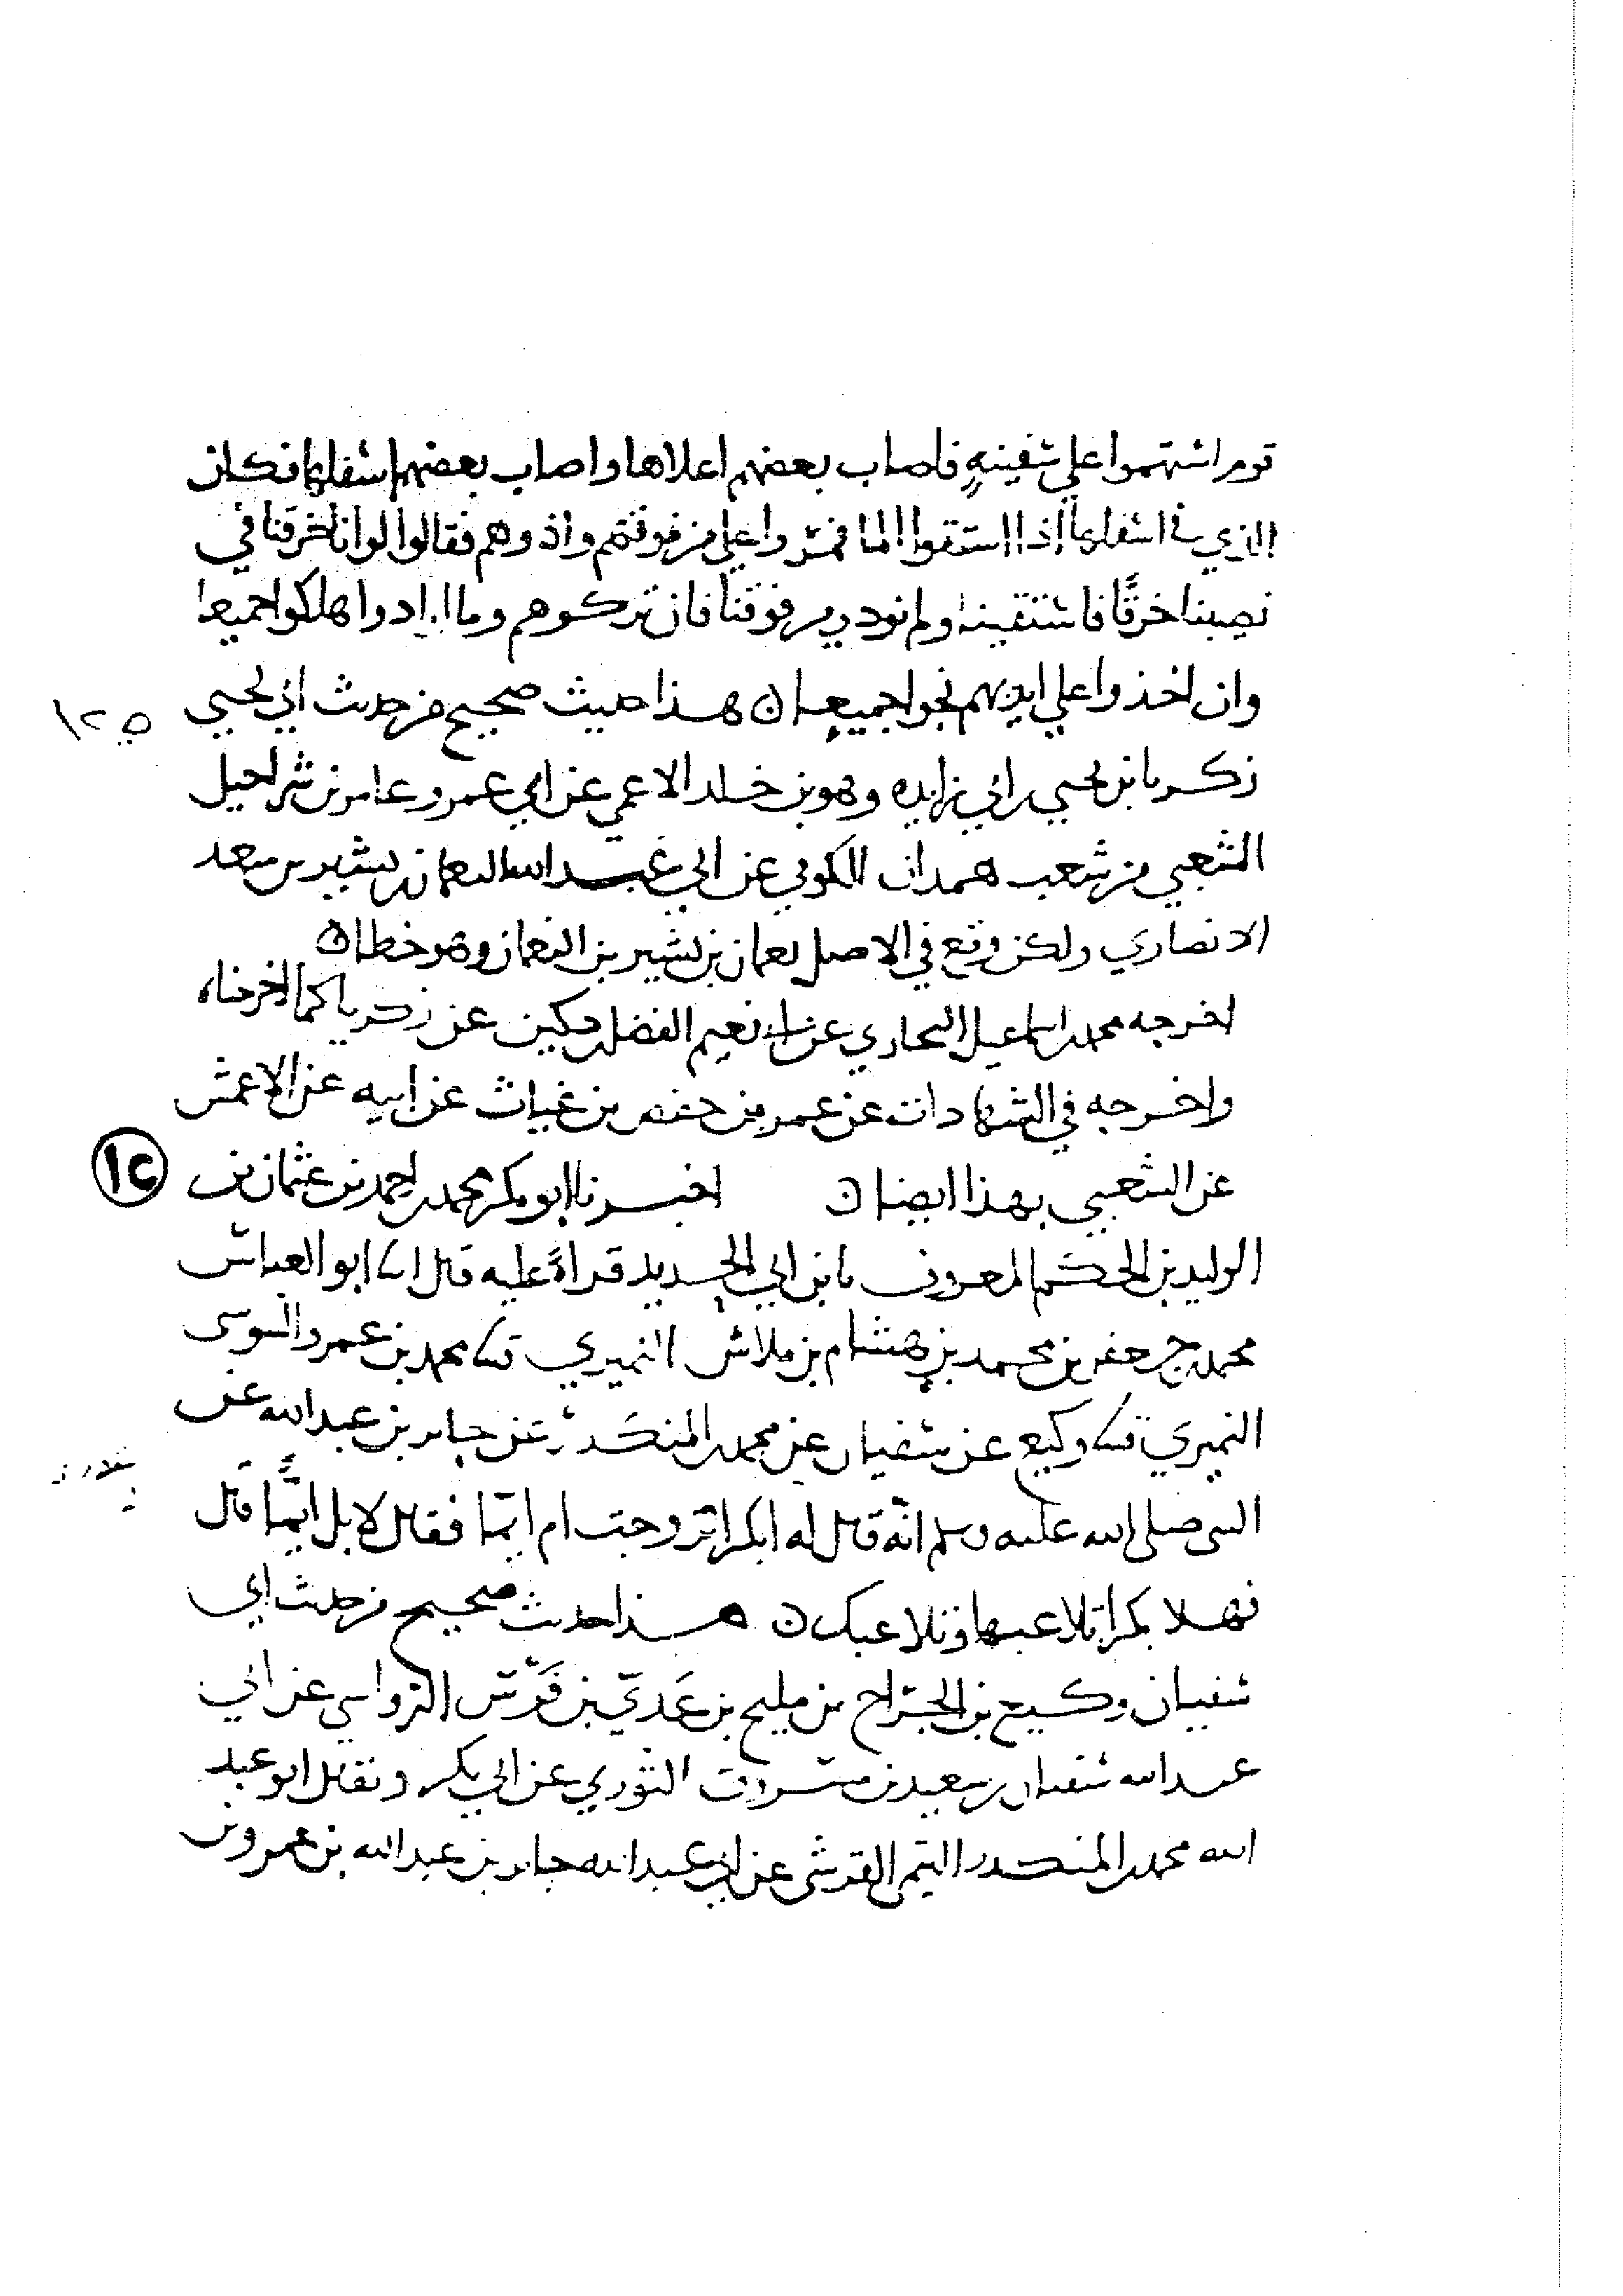 قوم استهموا على سفينةٍ فاصاب بعضهم اعلاها واصاب بعضهم اسفلها فكان
الذي في اسفلها اذا استقوا الما فمروا على من فوقهم واذوهم فقالوا لو انا خرقنا في
نصيبنا خرقًا فاستقينا ولم نودي من فوقنا فان تركوهم وما ارادوا هلكوا جميعا
وان اخذوا على ايديهم نجوا جميعا ن هذا حديث صحيح من حديث ابي يحيى
١٢٥
زكريا بن يحيى بن ابي زايده وهو بن خلد الاعمى عن ابي عمرو عامر بن شراحيل
الشعبي من شعب همدان الكوفي عن ابي عبد الله النعمان بن بشير بن سعد
الانصاري ولكن وقع في الاصل نعمان بن بشير بن النعمان وهو خطا ن
اخرجه محمد بن اسماعيل البخاري عن ابي نعيم الفضل بن دكين عن زكريا كما اخرجناه
واخرجه في الشهادات عن عمر بن حفص بن غياث عن ابيه عن الاعمش
عن الشعبي بهذا ايضا ن اخبرنا ابو بكر محمد بن احمد بن عثمان بن
١٢
الوليد بن الحكم المعروف بابن ابي الحديد قراةً عليه قال انا ابو العباس
محمد بن جعفر بن محمد بن هشام بن ملاس النميري ثنا محمد بن عمرو السوسي
النميري ثنا وكيع عن سفيان عن محمد بن المنكدر عن جابر بن عبد الله عن
النبي صلى الله عليه وسلم انّه قال له ابكرا تزوجت ام ايّما فقال لا بل ايّمًا قال
فهلا بكرا تلاعبها وتلاعبك ن هذا حديث صحيح من حديث ابي
سفيان وكيع بن الجرّاح بن مليح بن عَديّ بن فَرَس الرواسي عن ابي
عبد الله سفيان بن سعيد بن مسروق الثوري عن ابي بكر ويقال ابو عبد
الله محمد بن المنكدر التيمي القرشي عن ابي عبد الله جابر بن عبد الله بن عمرو بن